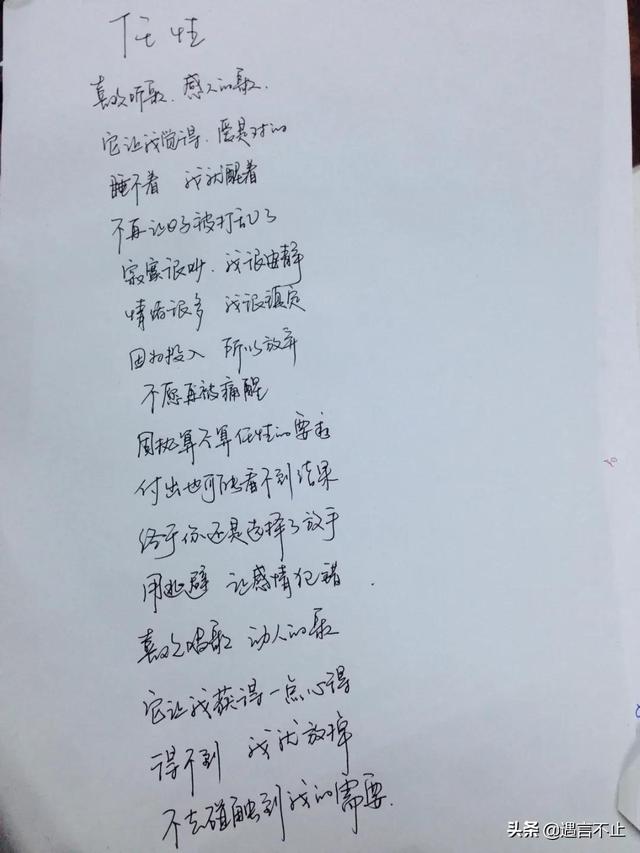 任性
喜欢听歌、感人的歌、
它让我觉得、爱是对的
睡不着 我就醒着
不再让日子被打乱了
寂寞很吵、我很安静
情绪很多 我很镇定
因为投入 所以放弃
不愿再被痛醒
固执算不算任性的要求
付出也可能看不到结果
终于你还是选择了放手
用逃避 让感情犯错.
喜欢唱歌 动人的歌
它让我获得一点心得
得不到 我就放掉
不去碰触到我的需要.
头条 @遇言不止